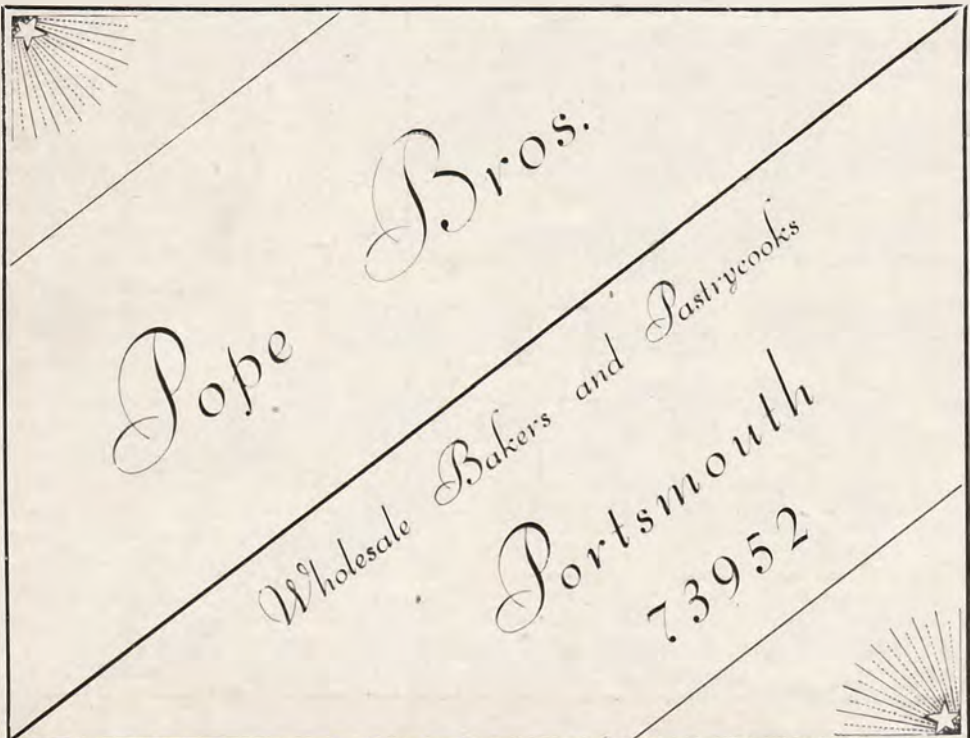 Pope Bros.
Wholesale Bakers and Pastrycooks
Portsmouth
73952